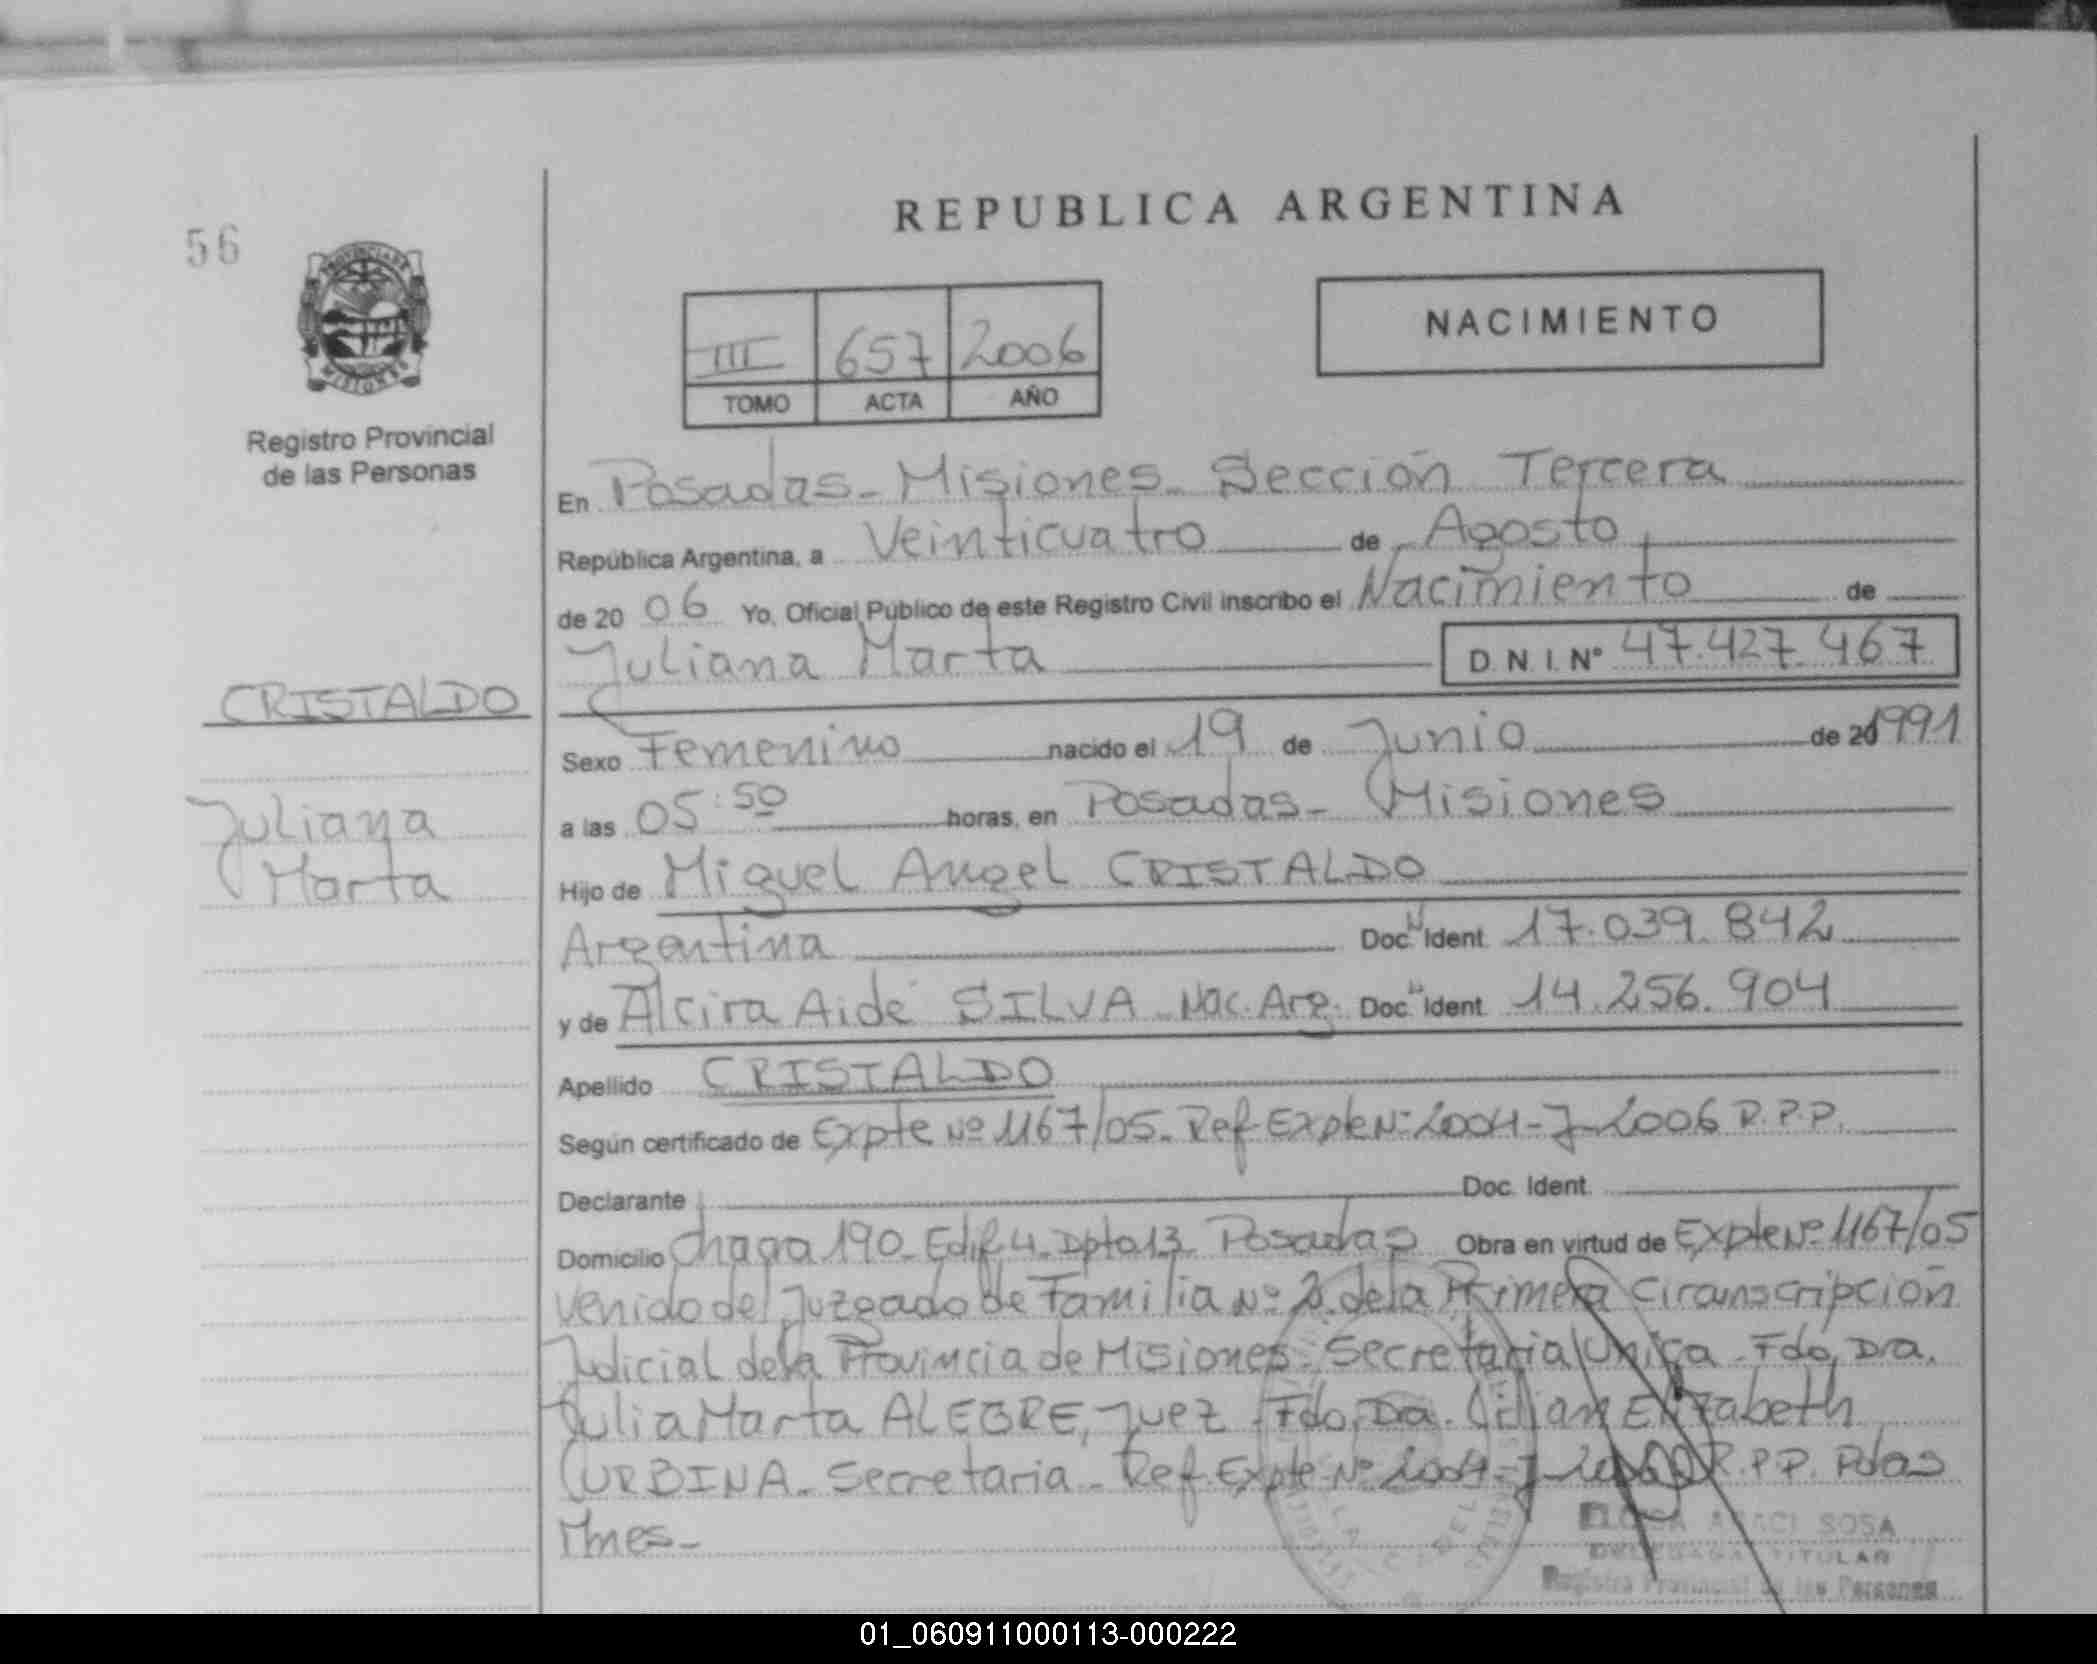 56
REPUBLICA ARGENTINA
PROVINCIA DE
MISIONES
Registro Provincial
de las Personas
III 657 2006
TOMO ACTA AÑO
NACIMIENTO
En Posadas - Misiones - Sección Tercera
República Argentina, a Veinticuatro de Agosto
de 20 06 Yo, Oficial Público de este Registro Civil inscribo el Nacimiento de
Juliana Marta D.N.I. Nº 47.427.467
CRISTALDO
Juliana
Marta
Sexo Femenino nacido el 19 de Junio de 20 1991
a las 05:50 horas, en Posadas - Misiones
Hijo de Miguel Angel CRISTALDO
Argentina Doc. Ident. 17.039.842
y de Alcira Aidé SILVA - Nac. Arg. Doc. Ident. 14.256.904
Apellido CRISTALDO
Según certificado de Expte Nº 1167/05. Ref Expte Nº 2004-J-2006 R.P.P.
Declarante Doc. Ident.
Domicilio Chaca 190 - Edif 4 - Dpto 13 - Posadas Obra en virtud de Expte Nº 1167/05
venido del Juzgado de Familia Nº 2 de la Primera Circunscripción
Judicial de la Provincia de Misiones - Secretaria Unica - Fdo, Dra.
Julia Marta ALEGRE, Juez - Fdo, Dra. Lilian Elizabeth
URBINA - Secretaria - Ref. Expte Nº 2004-J-2006 R.P.P. Pdas
Mnes -
SOSA
DELEGADA TITULAR
Registro Provincial de las Personas
01_060911000113-000222